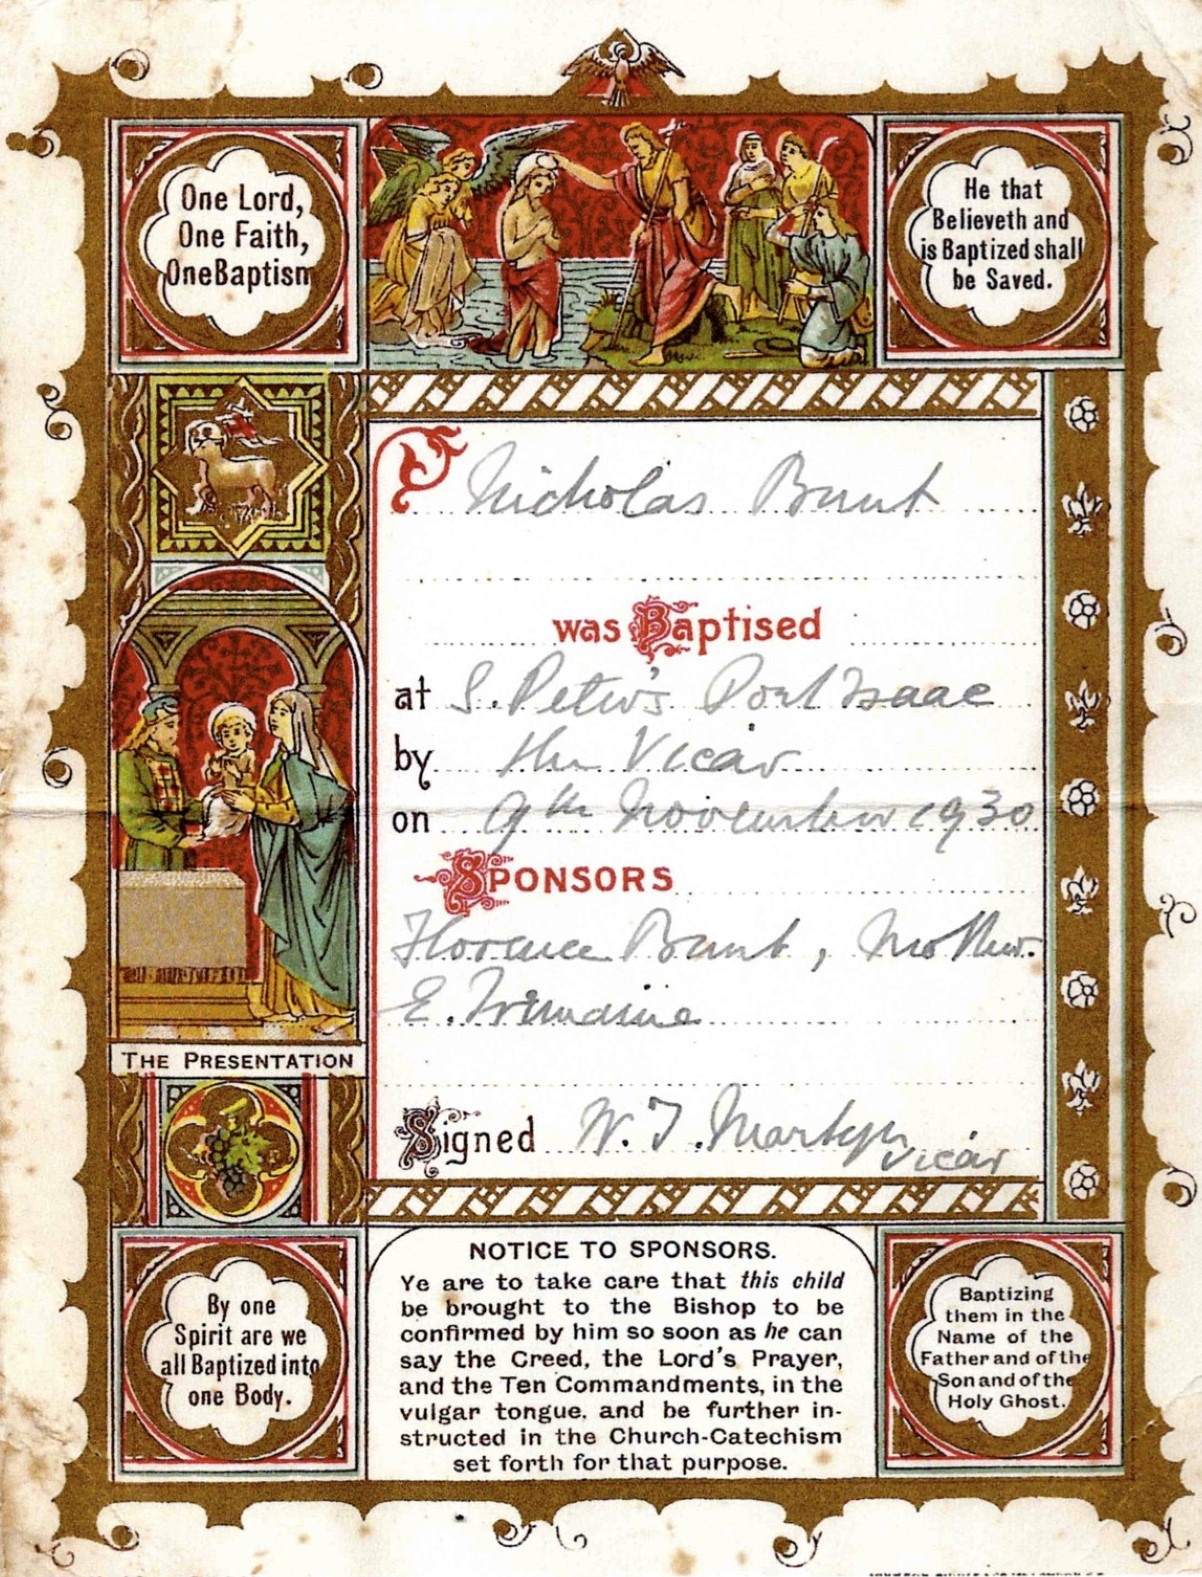 One Lord,
One Faith,
One Baptism
He that
Believeth and
is Baptized shall
be Saved.
Nicholas Bunt
was Baptised
at S. Peter's Port Isaac
by the Vicar
on 9th November 1930
SPONSORS
Florence Bunt, Mother.
E.
THE PRESENTATION
Signed W. J. Martyn
Vicar
By one
Spirit are we
all Baptized into
one Body.
NOTICE TO SPONSORS.
Ye are to take care that this child
be brought to the Bishop to be
confirmed by him so soon as he can
say the Creed, the Lord's Prayer,
and the Ten Commandments, in the
vulgar tongue, and be further in-
structed in the Church-Catechism
set forth for that purpose.
Baptizing
them in the
Name of the
Father and of the
Son and of the
Holy Ghost.